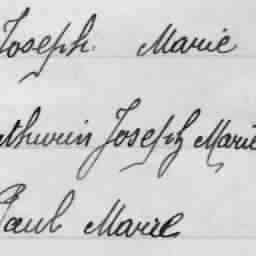 Joseph. Marie
athurin Joseph Marie
Paul Marie